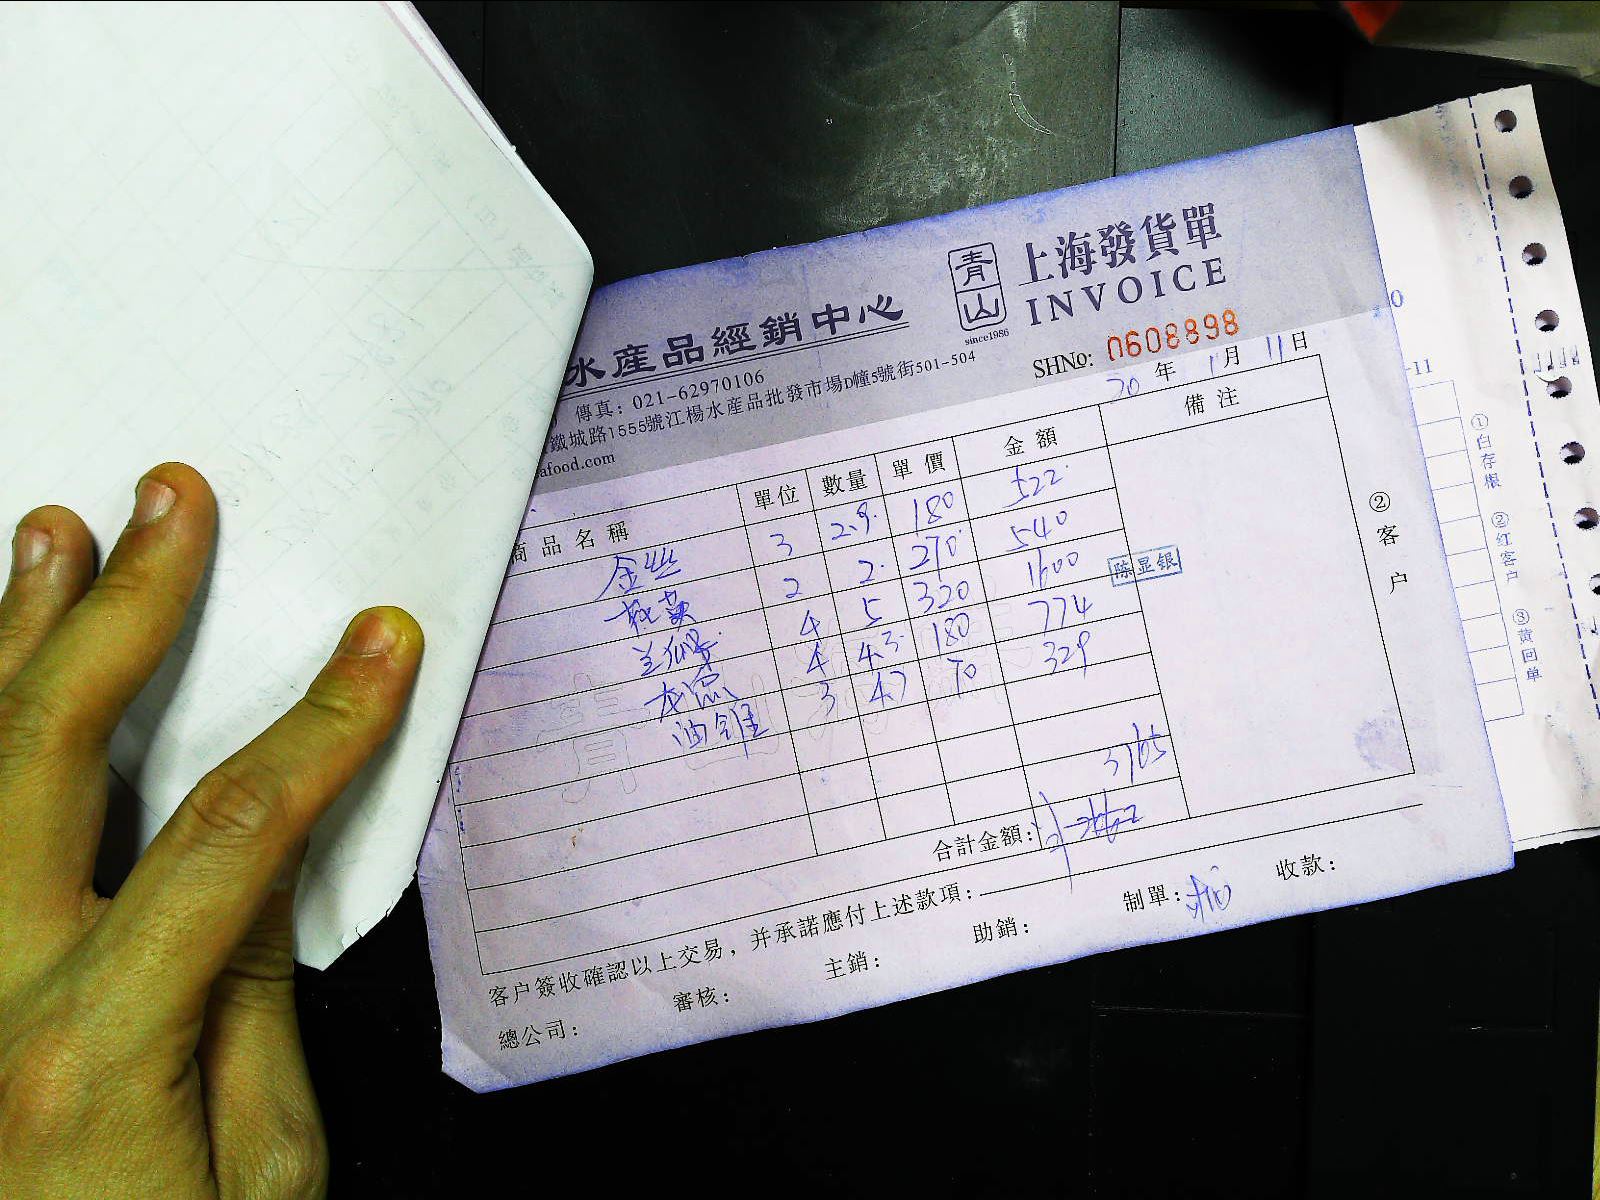 青山
since1986
上海發貨單
INVOICE
水産品經銷中心
SHNo: 0608898
傳真：021-62970106
鐵城路1555號江楊水産品批發市場D幢5號街501-504
afood.com
20 年 1 月 11 日
商品名稱 單位 數量 單價 金額 備注
金丝 3 2.9 180 522
2 2 270 540
4 5 320 1600
4 4.3 180 774
3 4.7 70 329
陈显银
3765
合計金額：
客户簽收確認以上交易，并承諾應付上述款項：
總公司： 審核： 主銷： 助銷： 制單： 收款：
②客户
①白存根 ②红客户 ③黄回单
-11